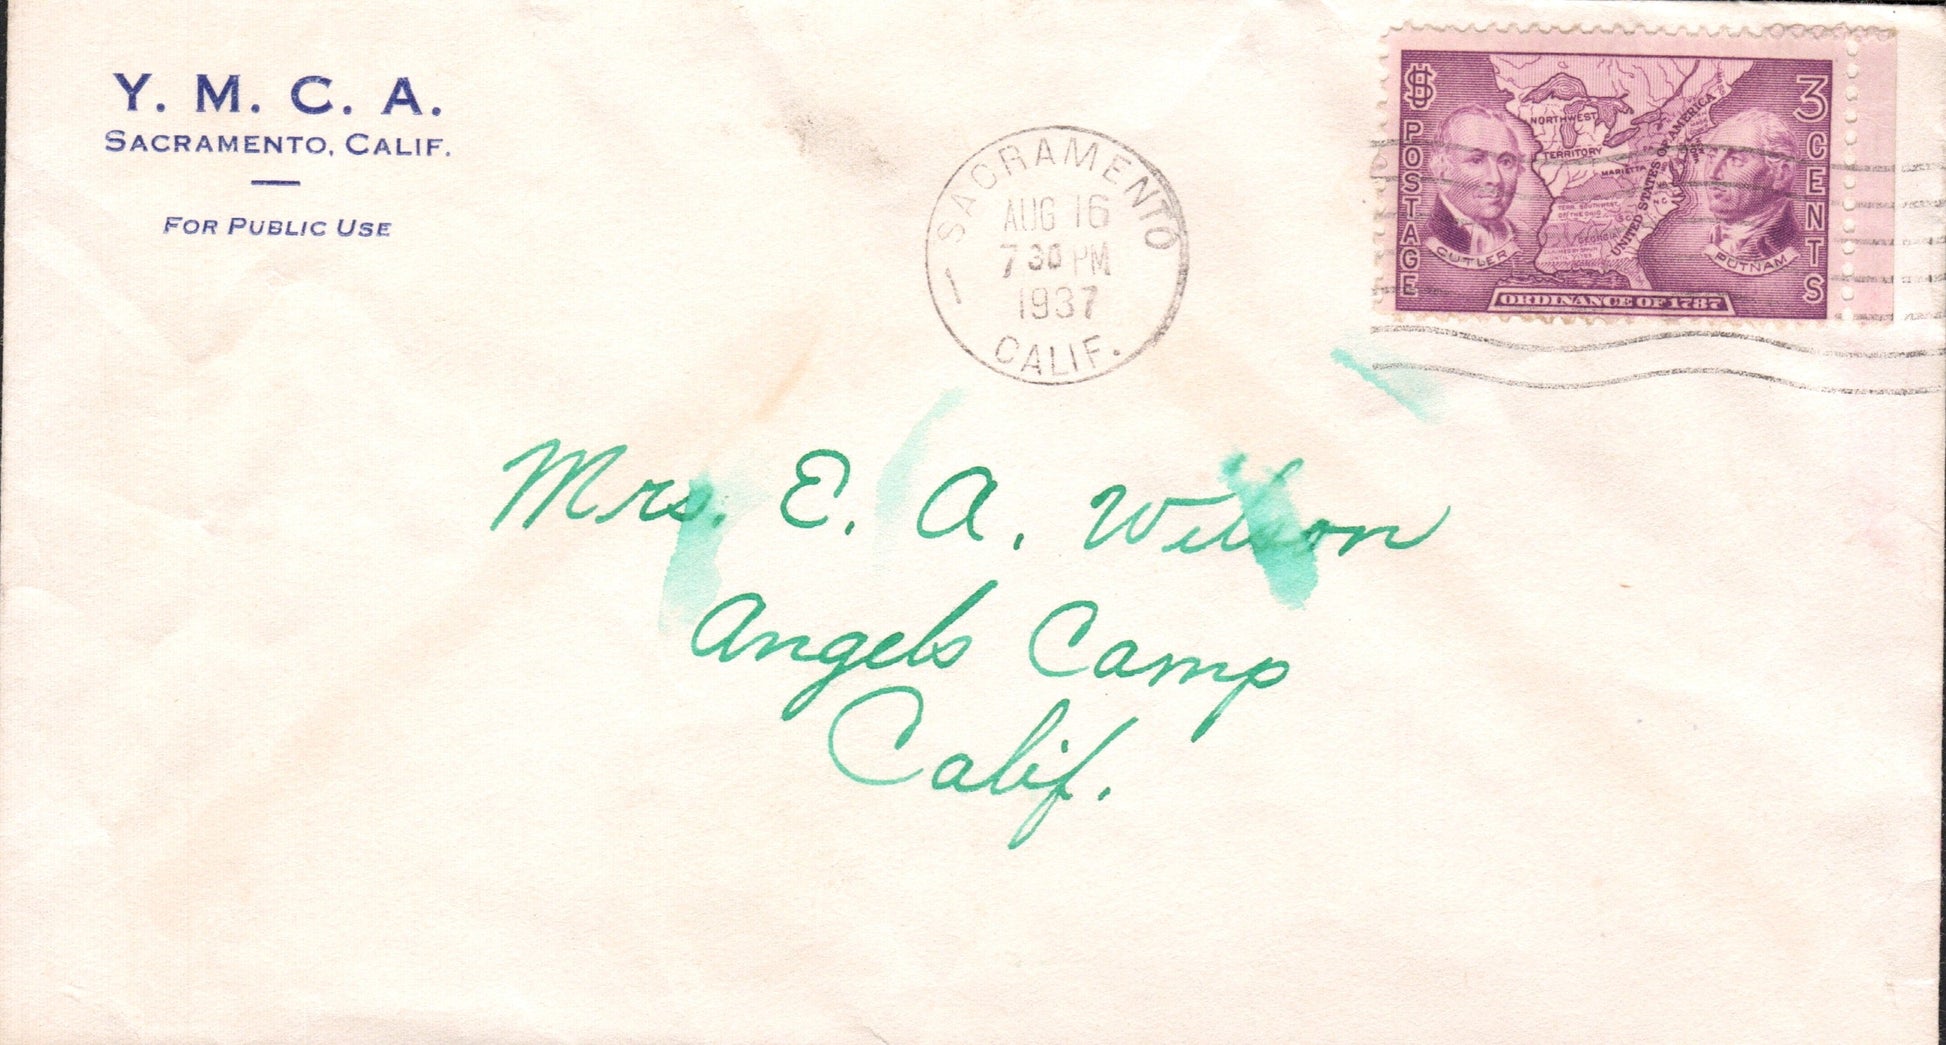 Y. M. C. A.
SACRAMENTO, CALIF.
FOR PUBLIC USE
SACRAMENTO
AUG 16
7 30 PM
1937
CALIF.
1
$ 3
POSTAGE
CENTS
NORTHWEST
TERRITORY
MARIETTA
UNITED STATES OF AMERICA
GEORGIA
CUTLER
PUTNAM
ORDINANCE OF 1787
Mrs. E. A. Wilson
Angels Camp
Calif.